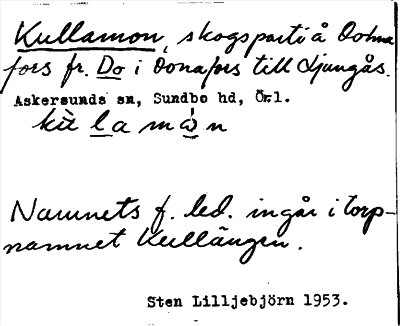 Kullamon, skogsparti å Dohna
fors fr. Do i Donafors till Ljungås.
Askersunds sn, Sundbo hd, Ör1.
kù la mó n
Namnets f. led. ingår i torp-
namnet Kullängen.
Sten Lilljebjörn 1953.